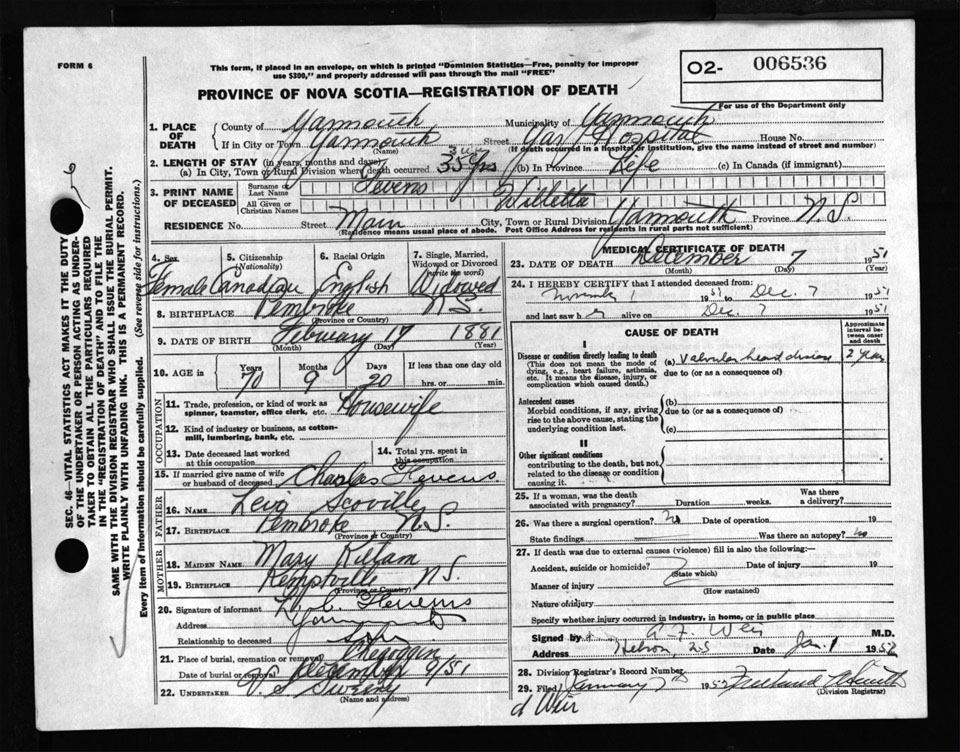 FORM 6
This form, if placed in an envelope, on which is printed "Dominion Statistics—Free, penalty for improper
use $300," and properly addressed will pass through the mail "FREE"
O2- 006536
For use of the Department only
PROVINCE OF NOVA SCOTIA—REGISTRATION OF DEATH
SEC. 66—VITAL STATISTICS ACT MAKES IT THE DUTY
OF THE UNDERTAKER OR PERSON ACTING AS UNDER-
TAKER TO OBTAIN ALL THE PARTICULARS REQUIRED
IN THE "REGISTRATION OF DEATH" AND TO FILE THE
SAME WITH THE DIVISION REGISTRAR WHO SHALL ISSUE THE BURIAL PERMIT.
WRITE PLAINLY WITH UNFADING INK. THIS IS A PERMANENT RECORD.
Every item of Information should be carefully supplied. (See reverse side for instructions.)
1. PLACE OF DEATH County of Yarmouth Municipality of Yarmouth
If in City or Town Yarmouth Street Yar. Hospital House No.
(Name) (If death occurred in a hospital or institution, give the name instead of street and number)
2. LENGTH OF STAY (in years, months and days)
(a) In City, Town or Rural Division where death occurred 35 yrs (b) In Province Life (c) In Canada (if immigrant)
3. PRINT NAME OF DECEASED Surname or Last Name
All Given or Christian Names Willetta
RESIDENCE No. Street Main City, Town or Rural Division Yarmouth Province N.S.
(Residence means usual place of abode. Post Office Address for residents in rural parts not sufficient)
4. Sex 5. Citizenship (Nationality) 6. Racial Origin 7. Single, Married, Widowed or Divorced (write the word)
Female Canadian English Widowed
8. BIRTHPLACE Pembroke N.S.
(Province or Country)
9. DATE OF BIRTH February 17 1881
(Month) (Day) (Year)
10. AGE in Years Months Days If less than one day old
70 9 20 hrs. or min.
OCCUPATION
11. Trade, profession, or kind of work as
spinner, teamster, office clerk, etc. Housewife
12. Kind of industry or business, as cotton-
mill, lumbering, bank, etc.
13. Date deceased last worked
at this occupation
14. Total yrs. spent in
this occupation
15. If married give name of wife
or husband of deceased Charles
FATHER
16. NAME Scoville
17. BIRTHPLACE Pembroke N.S.
(Province or Country)
MOTHER
18. MAIDEN NAME Mary Killam
19. BIRTHPLACE Kemptville N.S.
(Province or Country)
20. Signature of informant
Address Yarmouth
Relationship to deceased
21. Place of burial, cremation or removal Chegoggin
Date of burial or removal December 9/51
22. UNDERTAKER V. S. Sweeny
(Name and address)
MEDICAL CERTIFICATE OF DEATH
23. DATE OF DEATH December 7 1951
(Month) (Day) (Year)
24. I HEREBY CERTIFY that I attended deceased from:
November 1 1951 to Dec. 7 1951
and last saw h er alive on Dec. 7 1951
CAUSE OF DEATH
Approximate
interval be-
tween onset
and death
I
Disease or condition directly leading to death
(This does not mean the mode of
dying, e.g., heart failure, asthenia,
etc. It means the disease, injury, or
complication which caused death.)
(a) Valvular heart disease 2 years
due to (or as a consequence of)
Antecedent causes
Morbid conditions, if any, giving
rise to the above cause, stating the
underlying condition last.
(b)
due to (or as a consequence of)
(c)
II
Other significant conditions
contributing to the death, but not
related to the disease or condition
causing it.
25. If a woman, was the death
associated with pregnancy? Duration weeks. Was there
a delivery?
26. Was there a surgical operation? no Date of operation 19
State findings Was there an autopsy? no
27. If death was due to external causes (violence) fill in also the following:—
Accident, suicide or homicide? Date of injury 19
(State which)
Manner of injury
(How sustained)
Nature of injury
Specify whether injury occurred in industry, in home, or in public place
Signed by A. F. Weir M.D.
Address Hebron, N.S Date Jan. 1 1952
28. Division Registrar's Record Number
29. Filed January 1952
(Division Registrar)
d Weir